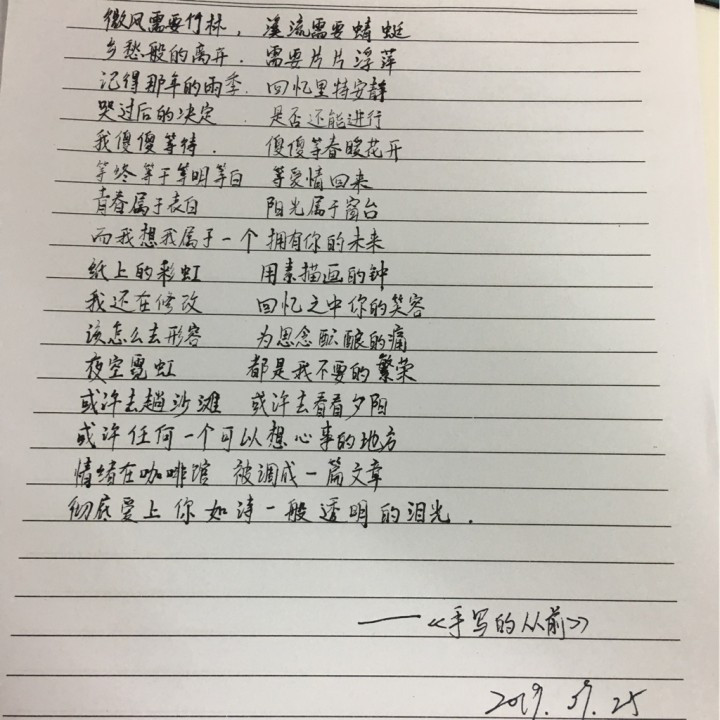 微风需要竹林，溪流需要蜻蜓
乡愁般的离开．需要片片浮萍
记得那年的雨季．回忆里特安静
哭过后的决定．是否还能进行
我傻傻等待．傻傻等春暖花开
等终等于等明等白 等爱情回来
青春属于表白 阳光属于窗台
而我想我属于一个 拥有你的未来
纸上的彩虹 用素描画的钟
我还在修改 回忆之中你的笑容
该怎么去形容 为思念酝酿的痛
夜空霓虹 都是我不要的繁荣
或许去趟沙滩 或许去看看夕阳
或许任何一个可以想心事的地方
情绪在咖啡馆 被调成一篇文章
彻底爱上你如诗一般透明的泪光．
——《手写的从前》
2019.07.25